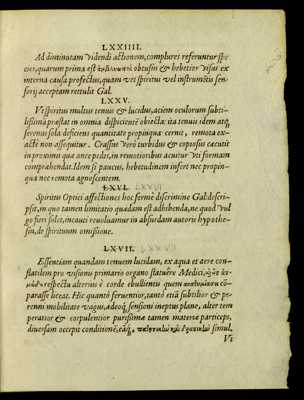 LXXIIII.
Ad diminutam videndi actionem, complures referuntur spe
cies, quarum prima est obtusior & hebetior visus ex
interna causa profectus, quam vel spiritus vel instrumẽtis sen-
sorij acceptam rettulit Gal.
LXXV.
Vt spiritus multus tenuis & lucidus, aciem oculorum subti-
lissimã præstat in omnia dispicienda obiecta: ita tenuis idem atq́;
serenus sola deficiens quantitate propinqua cernit, remota ex-
actè non assequitur. Crassus verò turbidus & copiosus cæcutit
in proximo quæ ante pedes, in remotioribus acuitur vt formam
comprehendat. Idem si paucus, hebetudinem infert nec propin-
qua nec remota agnoscentem.
LXVI.
Spiritus Optici affectiones hoc fermè discrimine Gal. descri-
psit, in quo tamen limitatio quædam est adhibenda, ne quod vul
go fieri solet, incauti revoluamur in absurdam autoris hypothe-
sin, de spirituum omissione.
LXVII.
Essentiam quandam tenuem lucidam, ex aqua et aere con-
flatilem pro visionis primario organo statuêre Medici,
respectu alterius è corde ebullientis quem
parasse liceat. Hic quantò feruentior, tantò etiã subtilior & pe-
renni mobilitate vagus, adeoq́; sensioni ineptus planè, alter tem
peratior & corpulentior purissimæ tamen materiæ particeps,
diuersam accepit conditionẽ, eáq́; simul,